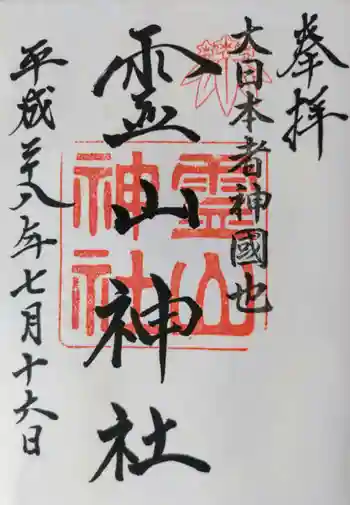 奉拝
大日本者神國也
靈山神社
霊山神社
平成廿八年七月十六日